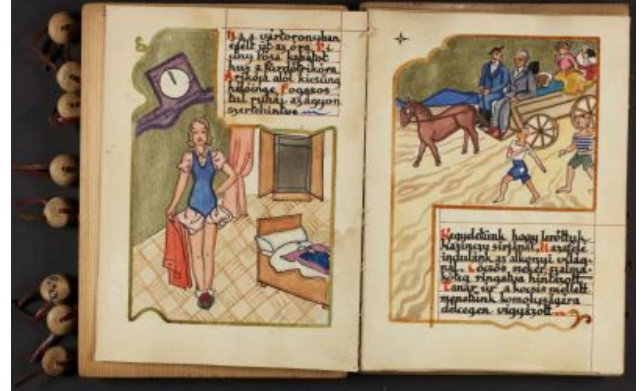 s a vártoronyban
éjfélt üt az óra. Ki
lány rósa kabátot
húz a fürdőtrikóra
alól kicsüng
hálóinge. Fogasos
túl ruhái az ágyon
szertehintve
Kegyeletünk hogy leróttuk
Kazinczy sírjánál. Hazafelé
indulánk az alkonyi világ-
nál. Kocsos szekér szalma-
köteg ringatva hintázott
Tanár úr a kocsis mellett
menetünk komolyságára
délcegen vigyázott